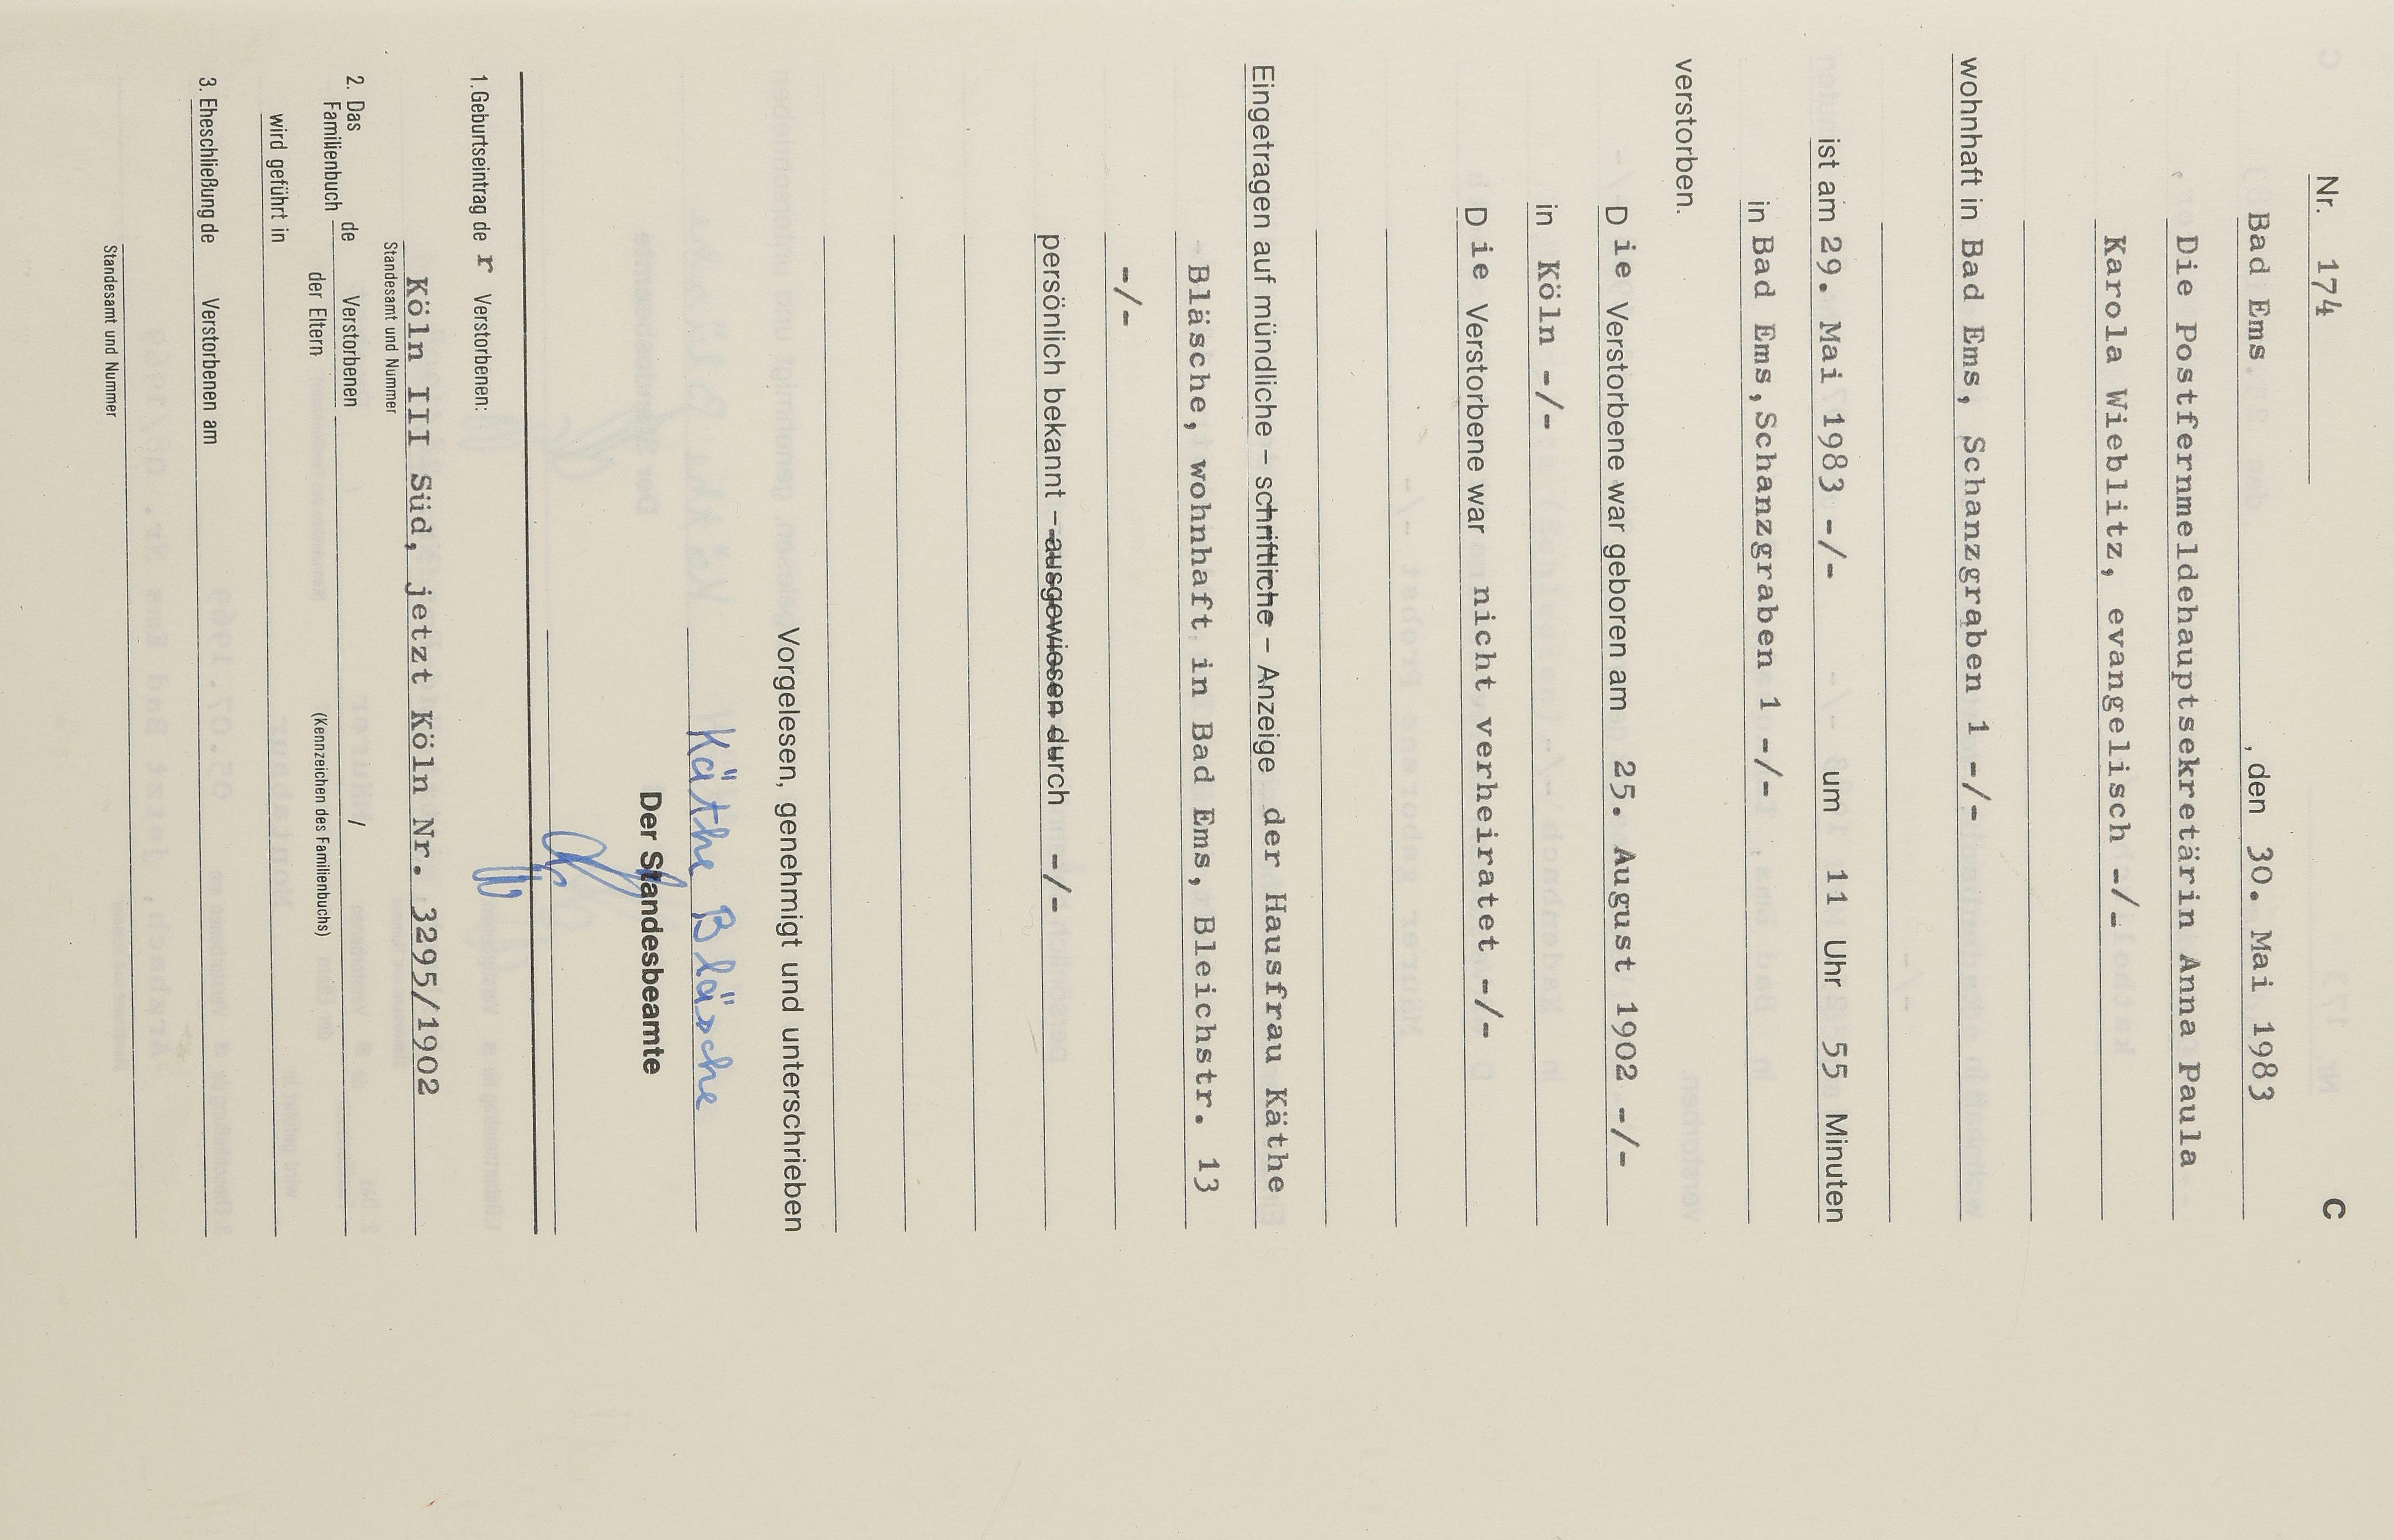 C
Nr. 174
Bad Ems , den 30. Mai 1983
Die Postfernmeldehauptsekretärin Anna Paula
Karola Wieblitz, evangelisch -/-
wohnhaft in Bad Ems, Schanzgraben 1 -/-
ist am 29. Mai 1983 -/- um 11 Uhr 55 Minuten
in Bad Ems, Schanzgraben 1 -/-
verstorben.
Die Verstorbene war geboren am 25. August 1902 -/-
in Köln -/-
Die Verstorbene war nicht verheiratet -/-
Eingetragen auf mündliche – schriftliche – Anzeige der Hausfrau Käthe
Bläsche, wohnhaft in Bad Ems, Bleichstr. 13
-/-
persönlich bekannt – ausgewiesen durch -/-
Vorgelesen, genehmigt und unterschrieben
Käthe Bläsche
Der Standesbeamte
1. Geburtseintrag de r Verstorbenen:
Köln III Süd, jetzt Köln Nr. 3295/1902
Standesamt und Nummer
2. Das Familienbuch de Verstorbenen /
der Eltern (Kennzeichen des Familienbuchs)
wird geführt in
3. Eheschließung de Verstorbenen am
Standesamt und Nummer